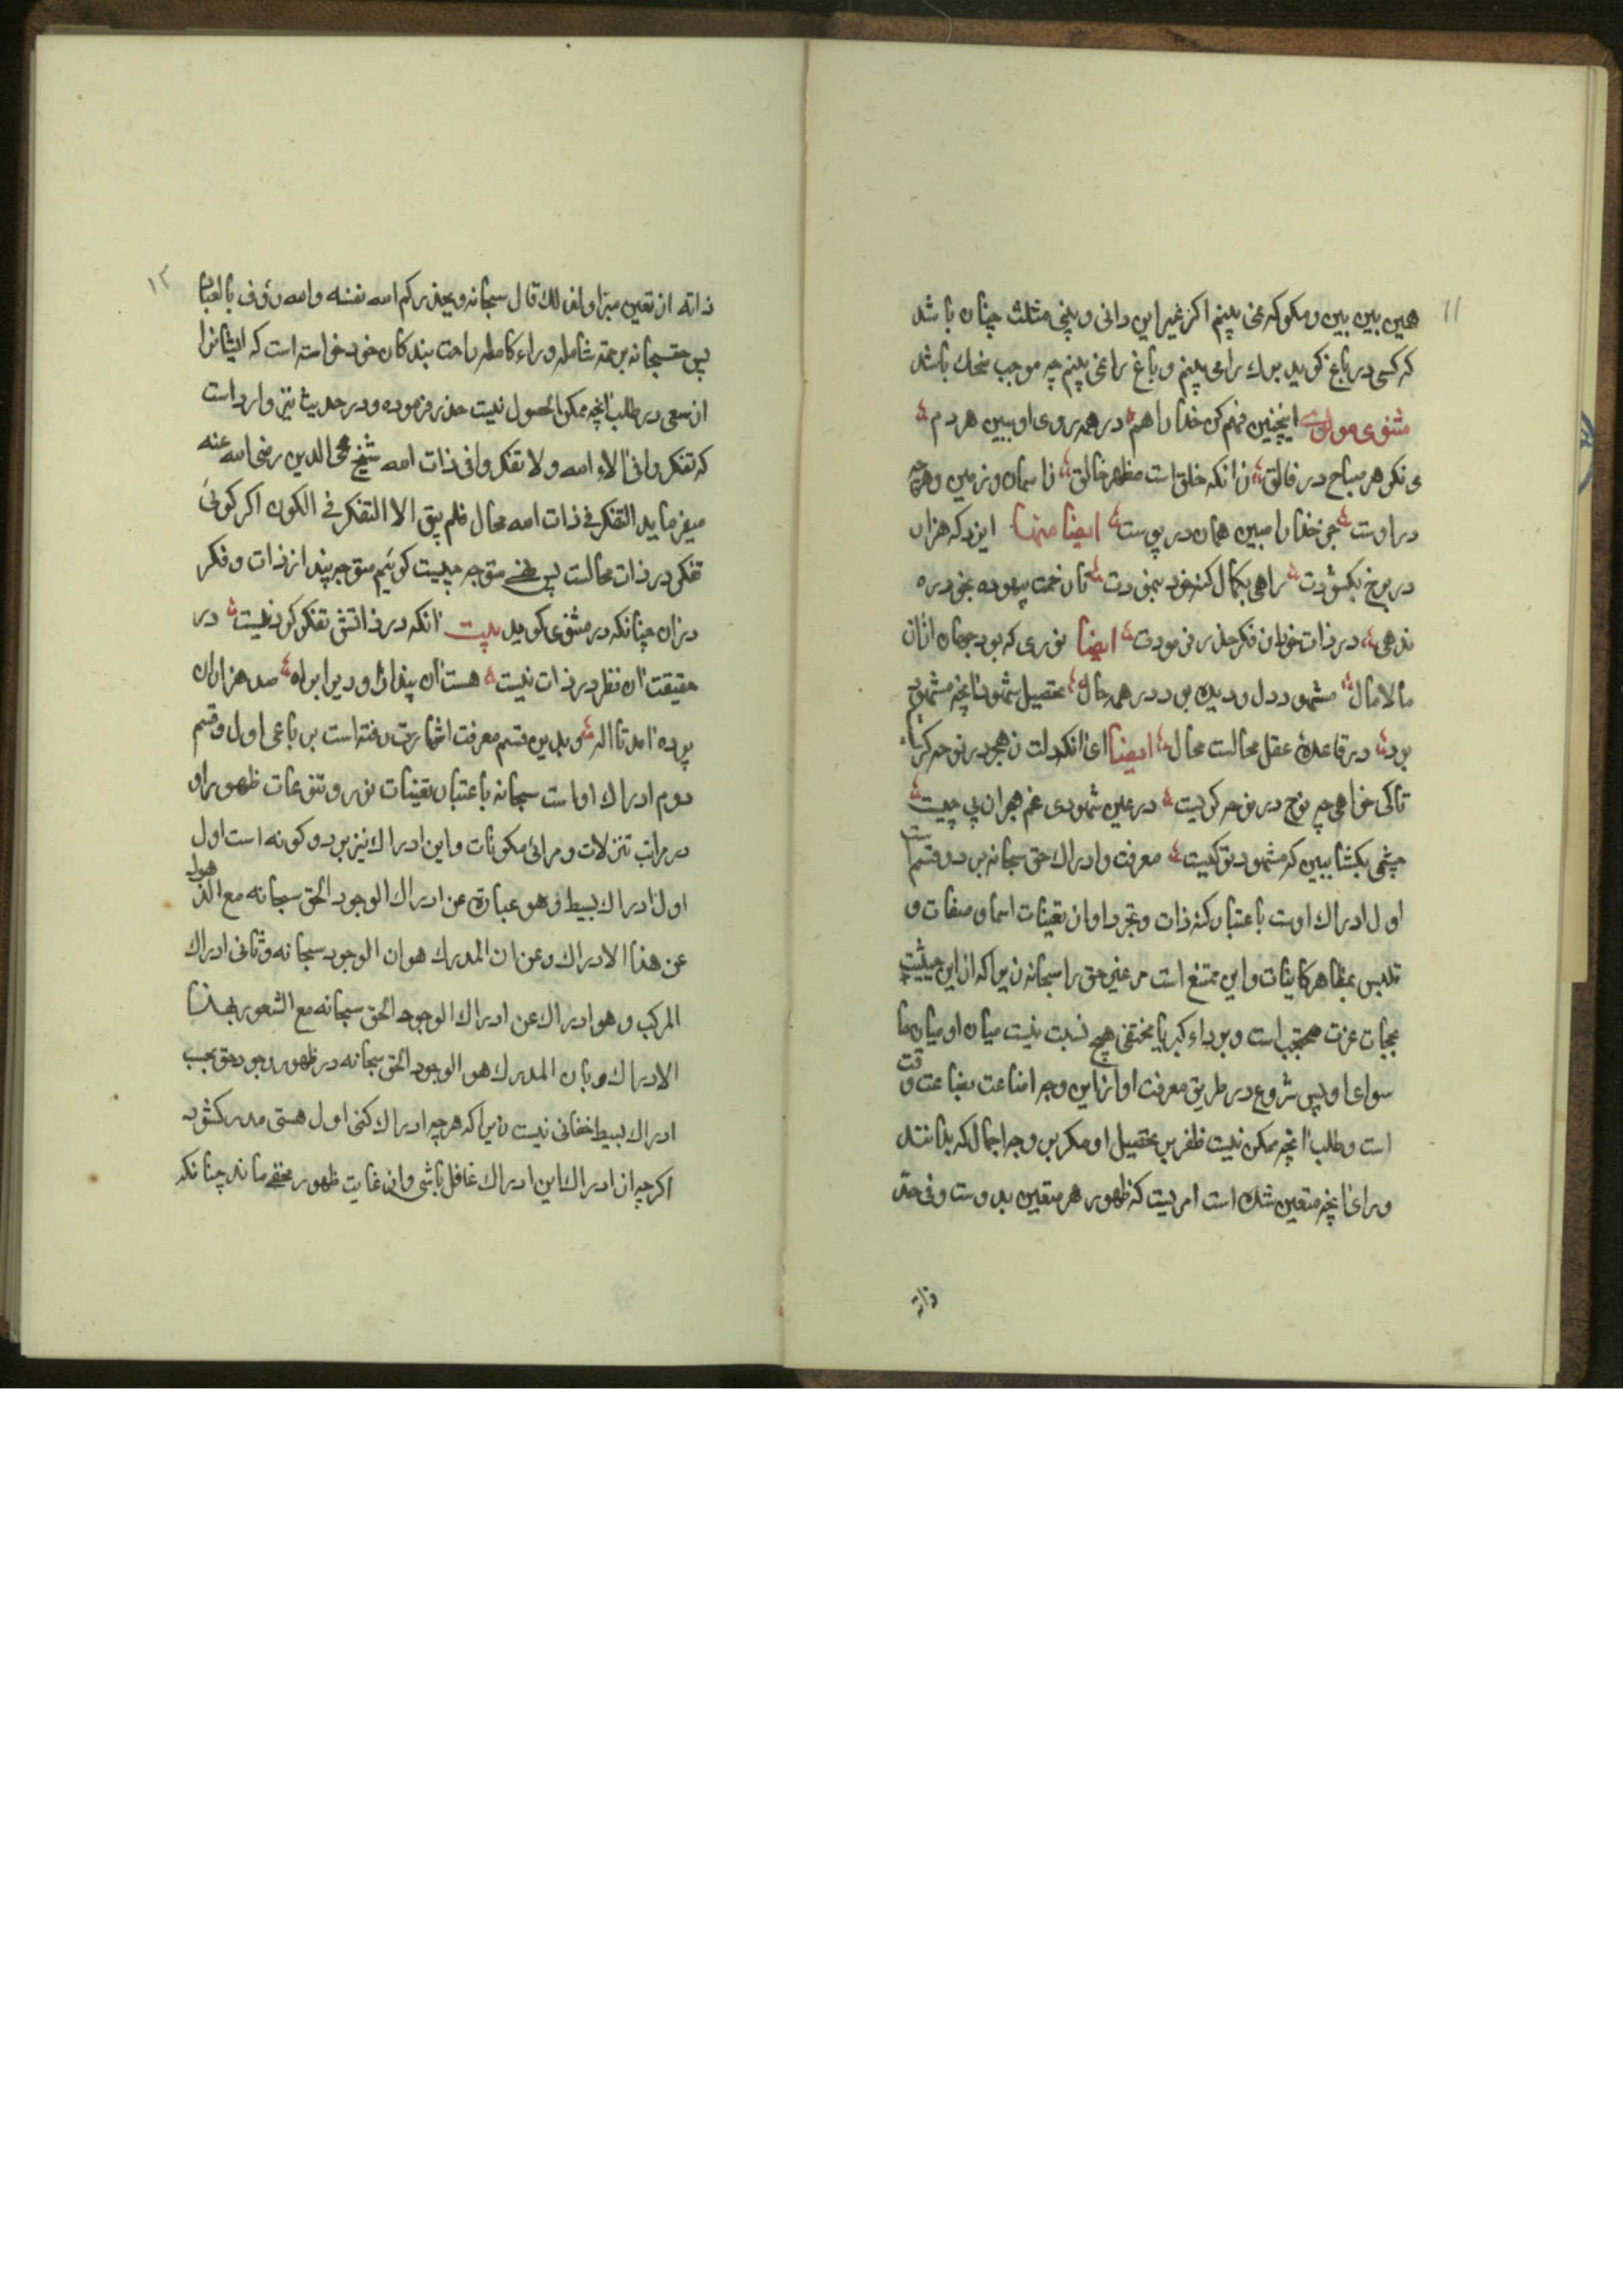 ۱۱
همین بین بین ومکو که نمی بینم اکر غیر این دانی و بینی مثلث چنان باشد
که کسی در باغ کوید برك را می بینم و باغ را نمی بینم چه موجب ضحك باشد
مثنوی مولوی اینچنین فهم کن خدا را هم در همه روی او ببین هر دم
می نکر هر صباح در فالق زانکه خلق است مظهر خالق ز اسمان و زمین و هرچه
در اوست جز خدا را مبین همان در پوست ایضا منها ایزد که هزار
در برخ بکشودت راهی بکمال کنه خود ننمودت تا زحمت بیهوده بخود ره
ندهی در ذات خود از فکر حذر فرمودت ایضا نوری که بود جهان ازان
مالامال مشهود دل و دیده بود در همه حال تحصیل شهود انچه مشهود
بود در قاعدهٔ عقل محالست محال ایضا ای انکه دلت ز هجر در نوحه کریست
تاکی خواهی چه نوح در نوحه کریست در عین شهودی غم هجران پی چیست
چشمی بکشا ببین که مشهود تو کیست معرفت و ادراك حق سبحانه بر دو قسم است
اول ادراك اوست باعتبار کنه ذات و تجرد او از تعینات اسما و صفات و
تلبس بمظاهر کاینات و این ممتنع است مر غیر حق را سبحانه زیرا که از این حیثیت
بحجاب عزت محتجب است و برداء کبریا مختفی هیچ نسبت نیست میان او میان ما
سوای او پس شروع در طریق معرفت او از این وجه اضاعت بضاعت وقت
است و طلب انچه ممکن نیست ظفر بر تحصیل او مکر بر وجه اجمال که بدانند
ورای انچه متعین شده است امریست که ظهور هر متعین بدوست و فی حد
ذاته
۱۲
ذاته از تعین مبرا ولذلك قال سبحانه ویحذرکم الله نفسه والله رؤف بالعباد
پس حقسبحانه برحمة شامله وراء کامله راحت بندکان خود خواسته است که ایشانرا
از سعی در طلب انچه ممکن الحصول نیست حذر فرموده و در حدیث نیز وارد است
که تفکروا فی الاء الله ولا تفکروا فی ذات الله شیخ محی الدین رضی الله عنه
میفرماید التفکر فی ذات الله محال فلم یبق الا التفکر فی الکون اکر کوئی
تفکر در ذات محالست پس نهی متوجه چیست کوئیم متوجه بپندار ذات و فکر
دران چنانکه در مثنوی کوید بیت انکه در ذاتش تفکر کردنیست در
حقیقت ان نظر در ذات نیست هست ان پندار او دیرا براه صد هزاران
پرده امد تا اله و بدین قسم معرفت اشارت رفته است بر باعی اول و قسم
دوم ادراك اوست سبحانه باعتبار تعینات نور و تنوعات ظهور او
در مراتب تنزلات و مرائی مکونات و این ادراك نیز بر دو کونه است اول
اول ادراك بسیط و هو عبارة عن ادراك الوجود الحق سبحانه مع الذهول
عن هذا الادراك وعن ان المدرك هو ان الوجود سبحانه وثانی ادراك
المرکب و هو ادراك عن ادراك الوجود الحق سبحانه مع الشعور بهذا
الادراك وبان المدرك هو الوجود الحق سبحانه در ظهور وجود حق بحسب
ادراك بسیط خفائی نیست زیرا که هرچه ادراك کنی اول هستی مدرك شود
اکرچه از ادراك این ادراك غافل باشی و از غایت ظهور مخفی ماند چنانکه